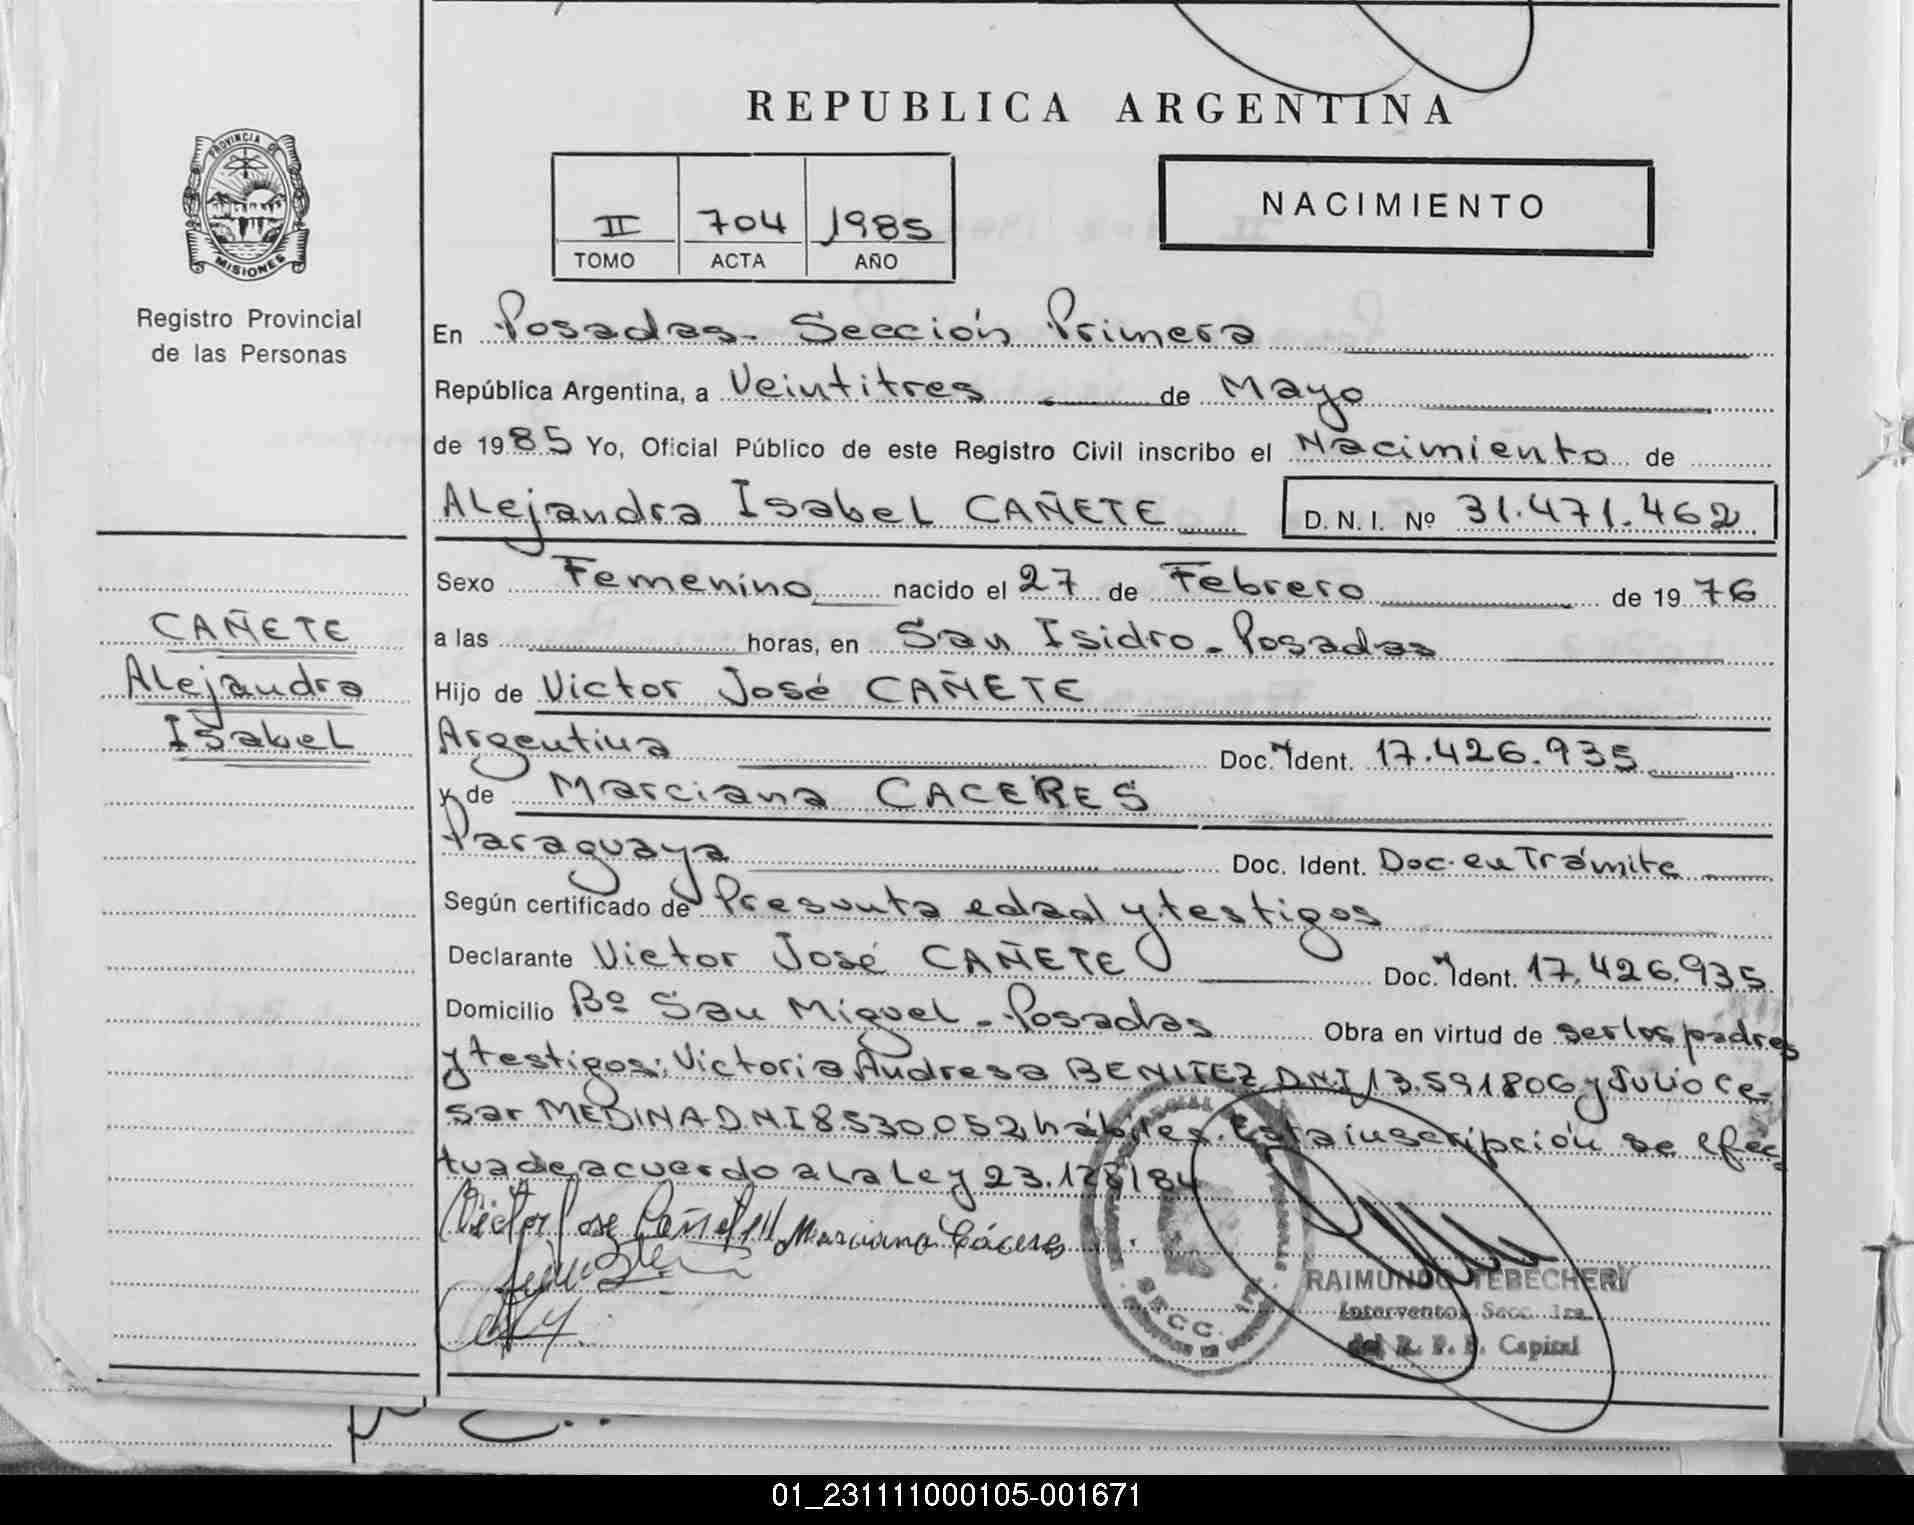 REPUBLICA ARGENTINA
PROVINCIA DE
MISIONES
Registro Provincial
de las Personas
II 704 1985
TOMO ACTA AÑO
NACIMIENTO
En Posadas - Sección Primera
República Argentina, a Veintitres de Mayo
de 1985 Yo, Oficial Público de este Registro Civil inscribo el Nacimiento de
Alejandra Isabel CAÑETE D. N. I. Nº 31.471.462
Sexo Femenino nacido el 27 de Febrero de 1976
a las horas, en San Isidro - Posadas
Hijo de Victor José CAÑETE
Argentina Doc. Ident. 17.426.935
y de Marciana CACERES
Paraguaya Doc. Ident. Doc. en Trámite
Según certificado de Presunta edad y testigos
Declarante Victor José CAÑETE Doc. Ident. 17.426.935
Domicilio Bº San Miguel - Posadas Obra en virtud de ser los padres
y testigos: Victoria Andresa BENITEZ DNI 13.591806 y Julio Ce-
sar MEDINA D.N.I 8.530.052, hábiles. Esta inscripción se efec
tua de acuerdo a la Ley 23.128/84
CAÑETE
Alejandra
Isabel
Victor Jose Cañete Marciana Cáceres
SECC. 1ra.
RAIMUNDO TEBECHERI
Interventor Secc. 1ra.
del R. P. P. Capital
01_231111000105-001671